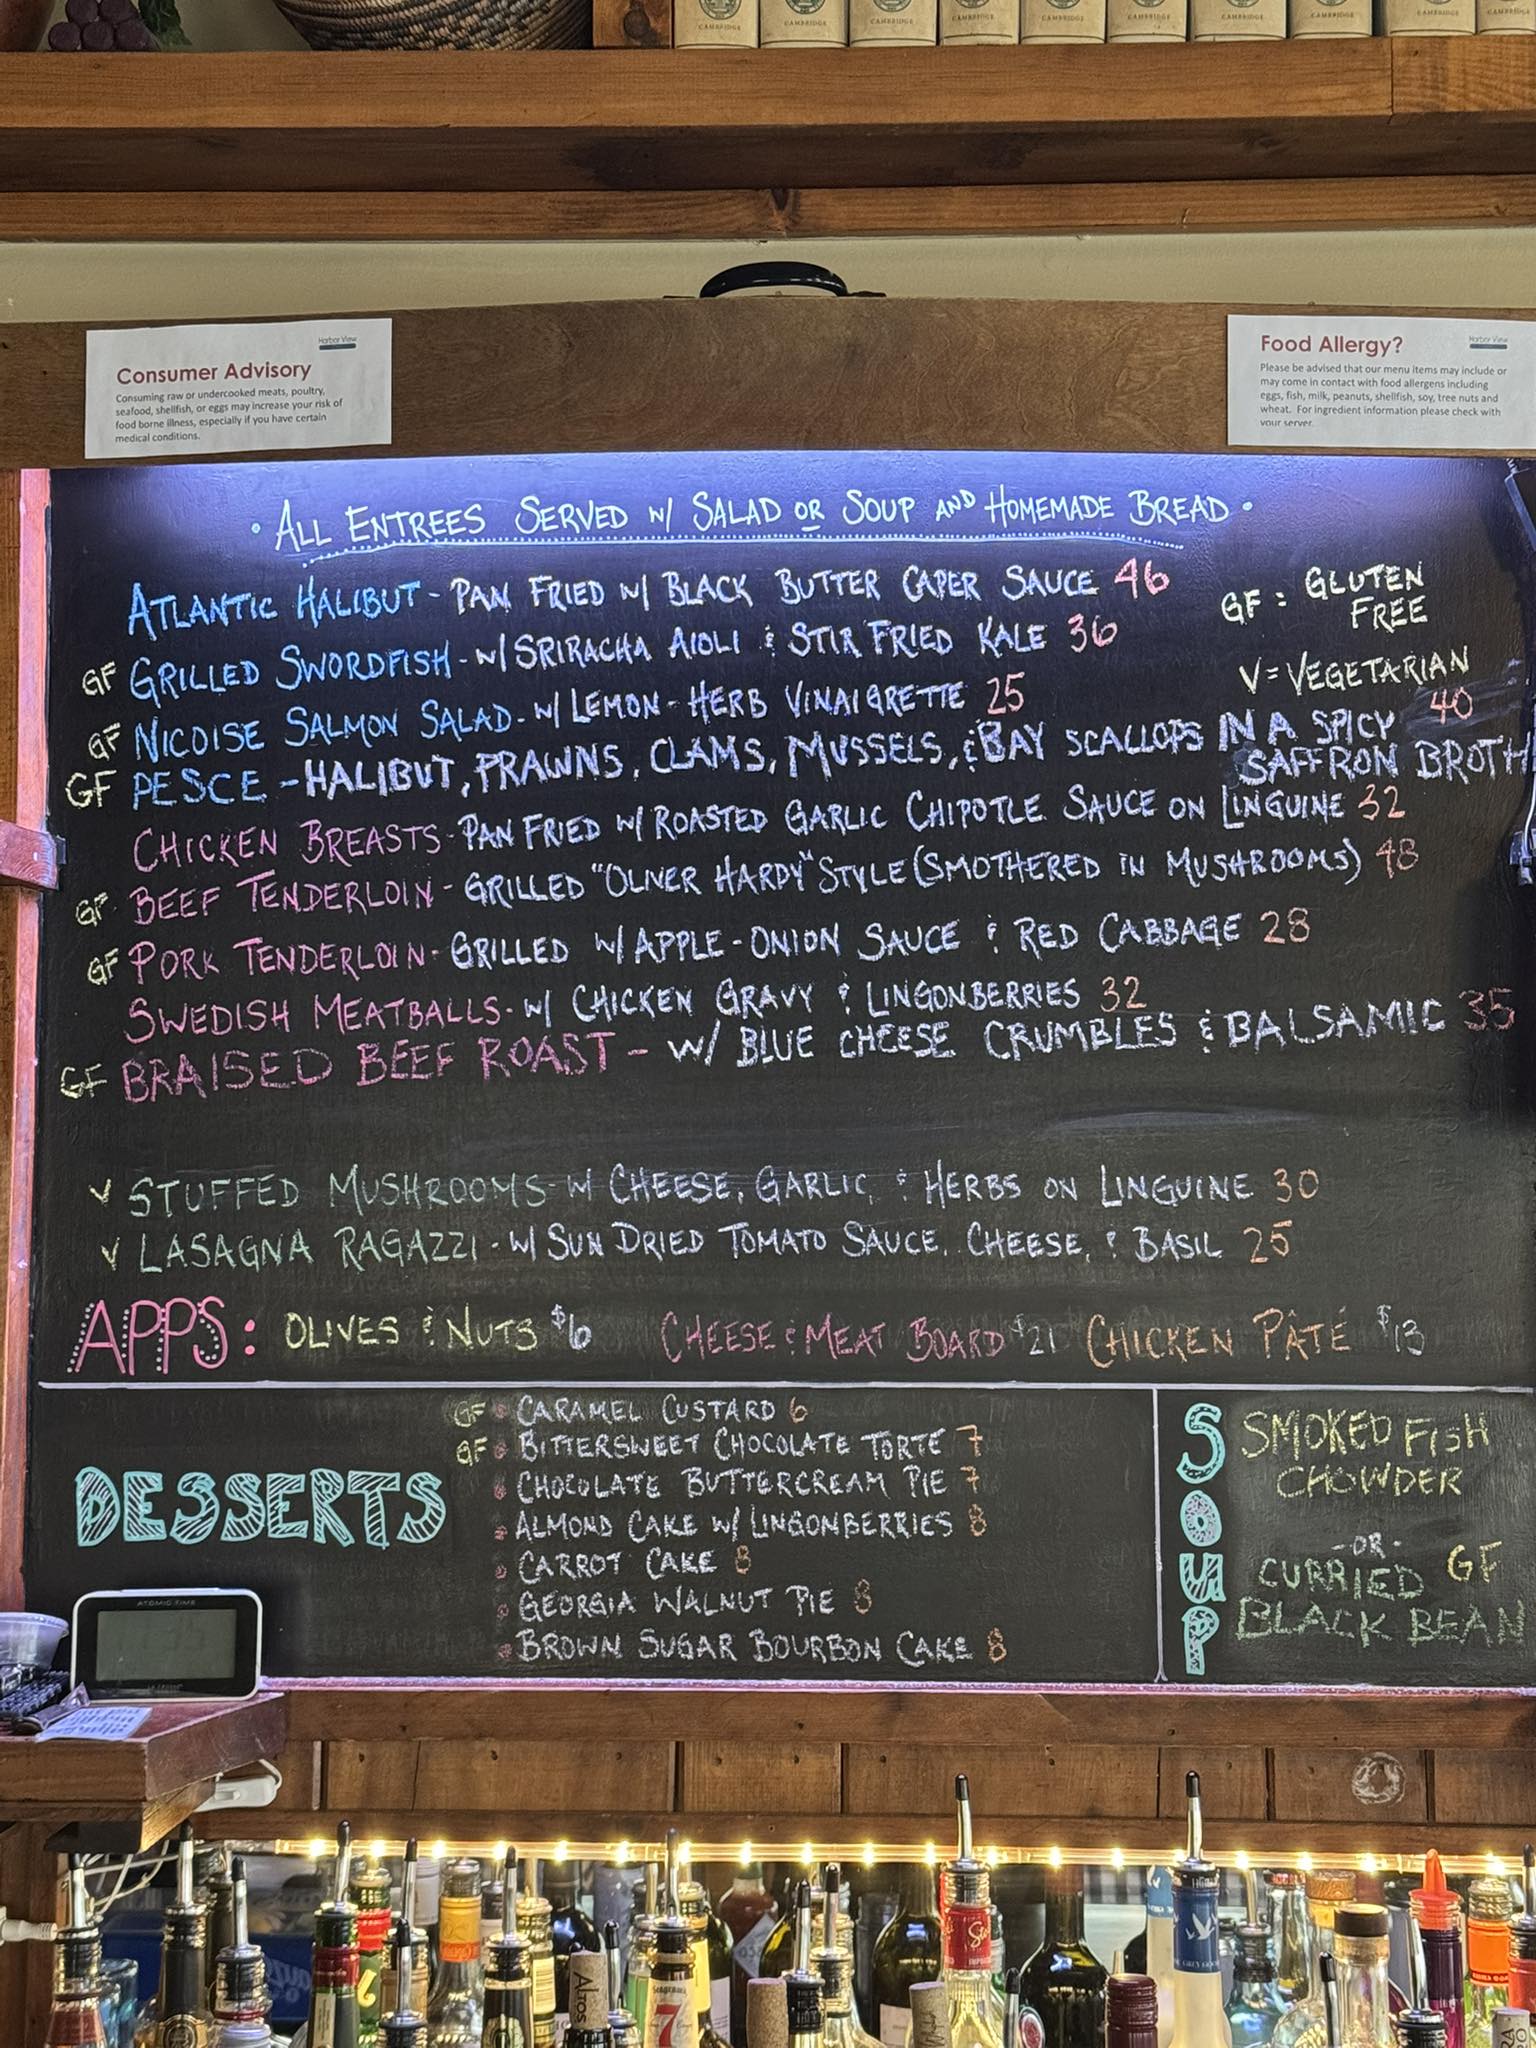 CAMBRIDGE CAMBRIDGE CAMBRIDGE CAMBRIDGE CAMBRIDGE CAMBRIDGE CAMBRIDGE CAMBRIDGE CAMBRIDGE CAMBRIDGE
Harbor View
Consumer Advisory
Consuming raw or undercooked meats, poultry,
seafood, shellfish, or eggs may increase your risk of
food borne illness, especially if you have certain
medical conditions.
Harbor View
Food Allergy?
Please be advised that our menu items may include or
may come in contact with food allergens including
eggs, fish, milk, peanuts, shellfish, soy, tree nuts and
wheat. For ingredient information please check with
your server.
• ALL ENTREES SERVED W/ SALAD OR SOUP AND HOMEMADE BREAD •
ATLANTIC HALIBUT - PAN FRIED W/ BLACK BUTTER CAPER SAUCE 46
GF = GLUTEN
FREE
GF GRILLED SWORDFISH - W/ SRIRACHA AIOLI & STIR FRIED KALE 36
V = VEGETARIAN
GF NICOISE SALMON SALAD - W/ LEMON-HERB VINAIGRETTE 25
GF PESCE - HALIBUT, PRAWNS, CLAMS, MUSSELS, & BAY SCALLOPS IN A SPICY 40
SAFFRON BROTH
CHICKEN BREASTS - PAN FRIED W/ ROASTED GARLIC CHIPOTLE SAUCE ON LINGUINE 32
GF BEEF TENDERLOIN - GRILLED "OLIVER HARDY" STYLE (SMOTHERED IN MUSHROOMS) 48
GF PORK TENDERLOIN - GRILLED W/ APPLE-ONION SAUCE & RED CABBAGE 28
SWEDISH MEATBALLS - W/ CHICKEN GRAVY & LINGONBERRIES 32
GF BRAISED BEEF ROAST - W/ BLUE CHEESE CRUMBLES & BALSAMIC 35
V STUFFED MUSHROOMS - W/ CHEESE, GARLIC, & HERBS ON LINGUINE 30
V LASAGNA RAGAZZI - W/ SUN DRIED TOMATO SAUCE, CHEESE, & BASIL 25
APPS: OLIVES & NUTS $6 CHEESE & MEAT BOARD $21 CHICKEN PÂTÉ $13
DESSERTS
GF • CARAMEL CUSTARD 6
GF • BITTERSWEET CHOCOLATE TORTE 7
• CHOCOLATE BUTTERCREAM PIE 7
• ALMOND CAKE W/ LINGONBERRIES 8
• CARROT CAKE 8
• GEORGIA WALNUT PIE 8
• BROWN SUGAR BOURBON CAKE 8
SOUP
SMOKED FISH
CHOWDER
-OR-
CURRIED GF
BLACK BEAN
ATOMIC TIME
Altos
Seagram's
7
GREY GOOSE